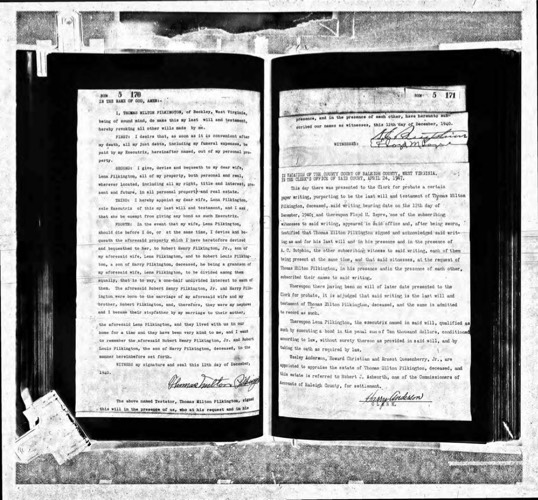 5 170
IN THE NAME OF GOD, AMEN:
I, THOMAS HILTON PILKINGTON, of Beckley, West Virginia,
being of sound mind, do make this my last will and testament,
hereby revoking all other wills made by me.
FIRST: I desire that, as soon as it is convenient after
my death, all my just debts, including my funeral expenses, be
paid by my Executrix, hereinafter named, out of my personal pro-
perty.
SECOND: I give, devise and bequeath to my dear wife,
Lena Pilkington, all of my property, both personal and real,
wherever located, including all my right, title and interest, pre-
sent and future, in all personal property and real estate.
THIRD: I hereby appoint my dear wife, Lena Pilkington,
sole Executrix of this my last will and testament, and I ask
that she be exempt from giving any bond as such Executrix.
FOURTH: In the event that my wife, Lena Pilkington,
should die before I do, or at the same time, I devise and be-
queath the aforesaid property which I have heretofore devised
and bequeathed to her, to Robert Henry Pilkington, Jr., son of
my aforesaid wife, Lena Pilkington, and to Robert Louis Pilking-
ton, a son of Harry Pilkington, deceased, he being a grandson of
my aforesaid wife, Lena Pilkington, to be divided among them
equally, that is to say, a one-half undivided interest to each of
them. The aforesaid Robert Henry Pilkington, Jr. and Harry Pilk-
ington were born to the marriage of my aforesaid wife and my
brother, Robert Pilkington, and, therefore, they were my nephews
and I became their stepfather by my marriage to their mother,
the aforesaid Lena Pilkington, and they lived with me in our
home for a time and they have been very kind to me, and I want
to remember the aforesaid Robert Henry Pilkington, Jr. and Robert
Louis Pilkington, the son of Harry Pilkington, deceased, in the
manner hereinbefore set forth.
WITNESS my signature and seal this 12th day of December,
1940.
Thomas Hilton Pilkington
The above named Testator, Thomas Hilton Pilkington, signed
this will in the presence of us, who at his request and in his
5 171
presence, and in the presence of each other, have hereunto sub-
scribed our names as witnesses, this 12th day of December, 1940.
WITNESSES:
IN VACATION OF THE COUNTY COURT OF RALEIGH COUNTY, WEST VIRGINIA,
IN THE CLERK'S OFFICE OF SAID COURT, APRIL 24, 1947.
This day there was presented to the Clerk for probate a certain
paper writing, purporting to be the last will and testament of Thomas Hilton
Pilkington, deceased, said writing bearing date on the 12th day of
December, 1940; and thereupon Floyd M. Sayre, one of the subscribing
witnesses to said writing, appeared in said office and, after being sworn,
testified that Thomas Hilton Pilkington signed and acknowledged said writ-
ing as and for his last will and in his presence and in the presence of
the other subscribing witness to said writing, each of them
being present at the same time, and that said witnesses, at the request of
Thomas Hilton Pilkington, in his presence and in the presence of each other,
subscribed their names to said writing.
Thereupon there having been no will of later date presented to the
Clerk for probate, it is adjudged that said writing is the last will and
testament of Thomas Hilton Pilkington, deceased, and the same is admitted
to record as such.
Thereupon Lena Pilkington, the executrix named in said will, qualified as
such by executing a bond in the penal sum of Ten thousand dollars, conditioned
according to law, without surety thereon as provided in said will, and by
taking the oath as required by law.
Wesley Anderson, Howard Christian and Ernest Quesenberry, Jr., are
appointed to appraise the estate of Thomas Hilton Pilkington, deceased, and
this estate is referred to Robert J. Ashworth, one of the Commissioners of
Accounts of Raleigh County, for settlement.
Anderson
CLERK